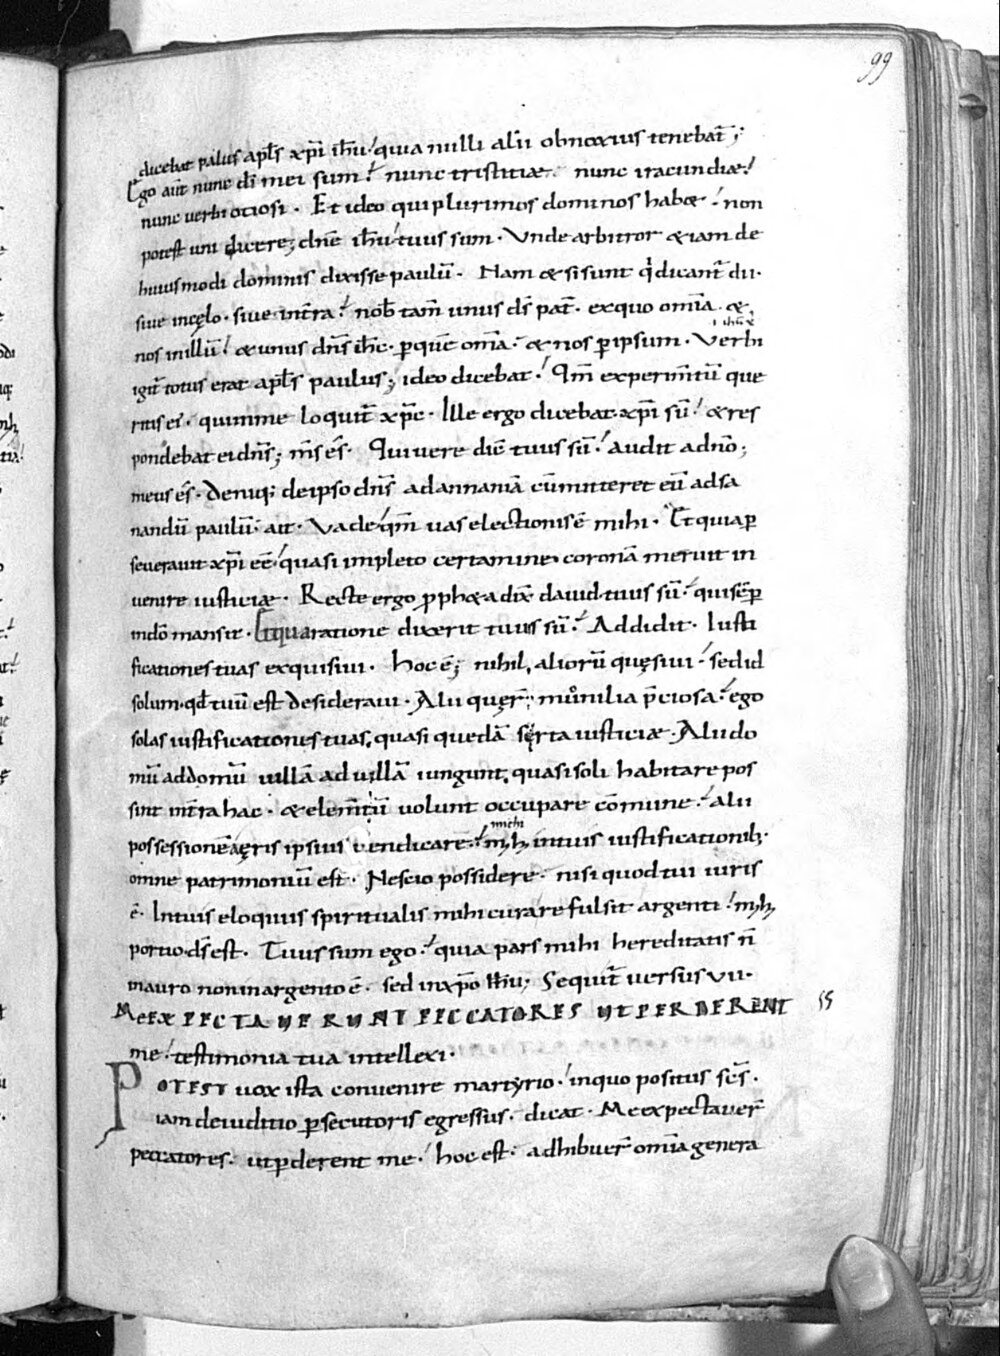 99
dicebat paulus apl̅s xp̅i ih̅u quia nulli alii obnoxius tenebat̅;
Ego aut̅ nunc di̅ mei sum. nunc tristitiae. nunc iracundiae.
nunc verbi otiosi. Et ideo qui plurimos dominos habet. non
potest uni dicere; dn̅e ih̅u tuus sum. Unde arbitror etiam de
huiusmodi dominis dixisse paulu̅. Nam et si sunt qi dicant̅ dii.
siue in cęlo. siue in t̅ra. nob̅ tam̅ unus ds̅ pat̅. ex quo om̅ia. et
nos in illu̅. et unus dn̅s ih̅c. p̲ que̅ om̅a. et nos p̲ ipsum. Verbi
igit̅ totus erat apl̅s paulus; ideo dicebat. Im̅ experim̅tu̅ que
ritis ei. qui in me loquit̅ xp̅c. Ille ergo dicebat xp̅i su̅. et res
pondebat ei dn̅s; m̅s e̅s. Qui vere die̅ tuus su̅. audit a dn̅o;
meus e̅s. Deniq; de ipso dn̅s ad annania̅ cu̅ mitteret eu̅ ad sa
nandu̅ paulu̅. ait. Vade qm̅ uas electionis e̅ mihi. Et quia p̲
seuerauit xp̅i ee̅ quasi impleto certamine corona̅ meruit in
uenire iusticiae. Recte ergo p̲pheta dix̅ dauid tuus su̅. qui se̅p̲
in dn̅o mansit. Et qua ratione dixerit tuus su̅. Addidit. Iusti
ficationes tuas exquisiui. Hoc e̅; nihil alioru̅ quęsiui. sed id
solum. qd̅ tuu̅ est desideraui. Alii quęr̅ monilia p̅ciosa. ego
solas iustificationes tuas, quasi queda̅ serta iusticiae. Alii do
mu̅ ad domu̅ uilla̅ ad uilla̅ iungunt, quasi soli habitare pos
sint int̅ra hac. et elem̅tu̅ uolunt occupare co̅mune. alii
michi
possessione̅ aęris ipsius uendicare. mh̅ in tuis iustificationib;
omne patrimoniu̅ est. Nescio possidere. nisi quod tui iuris
e̅. In tuis eloquiis spiritualis mihi curare fulsit argenti. mh̅
portio ds̅ est. Tuus sum ego. quia pars mihi hereditatis n̅
in auro non in argento e̅. sed in xp̅o ih̅u; Sequit̅ uersus VII.
ME EXPECTAVERUNT PECCATORES UT PERDERENT
me. testimonia tua intellexi.
POTEST uox ista conuenire martyrio. in quo positus sc̅s.
iam de iuditio p̲secutoris egressus. dicat. Me expectauer̅
peccatores. ut p̲derent me. hoc est. adhibuer̅ om̅ia genera